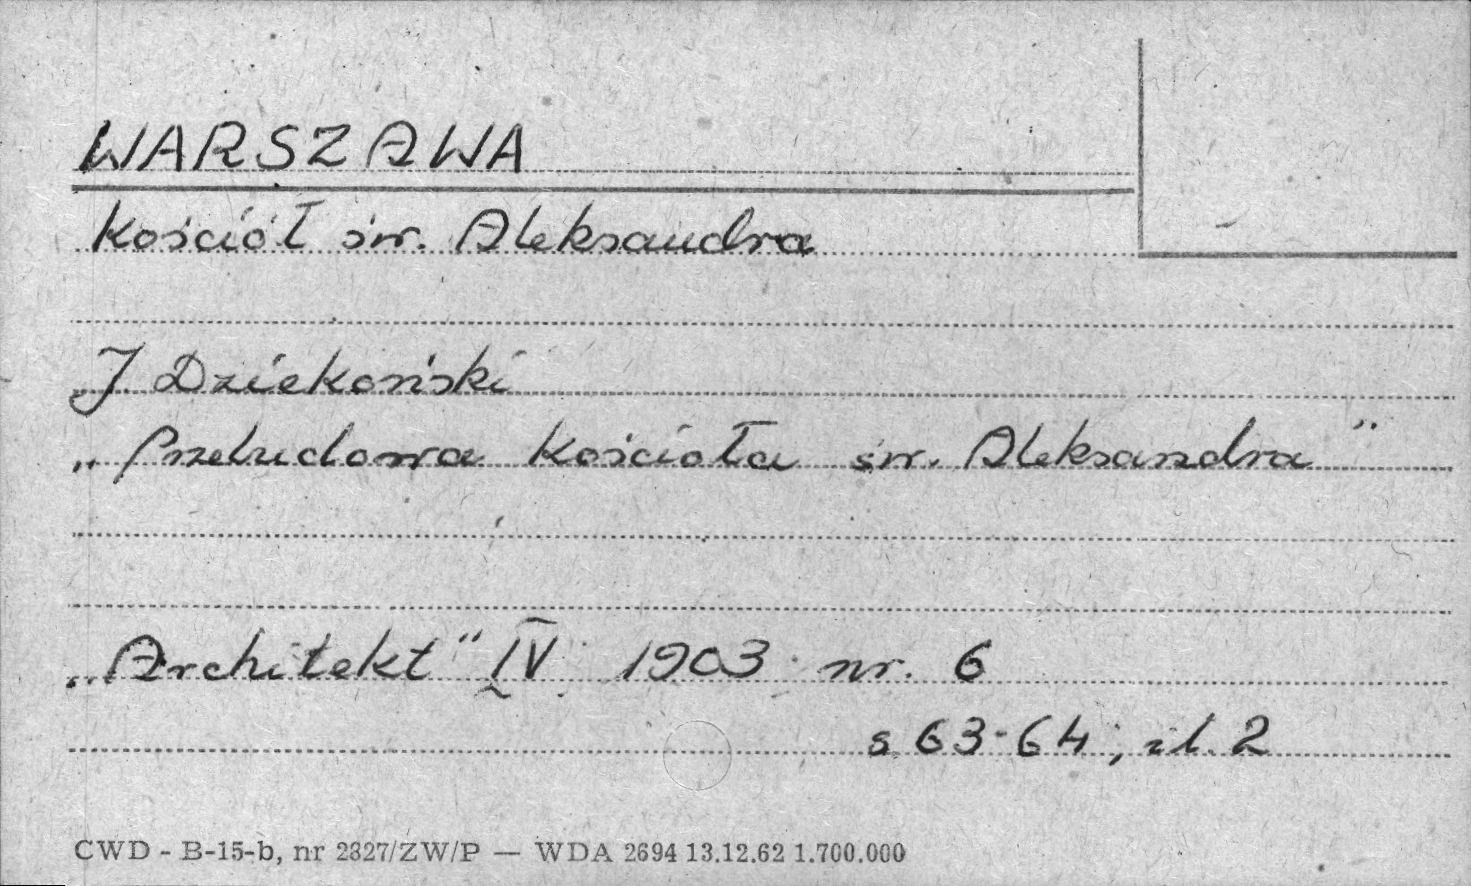 WARSZAWA
Kościół św. Aleksandra
J Dziekoński
„Przebudowa Kościoła św. Aleksandra”
„Architekt” IV 1903 nr. 6
s 63-64; il. 2
CWD - B-15-b, nr 2327/ZW/P — WDA 2694 13.12.62 1.700.000